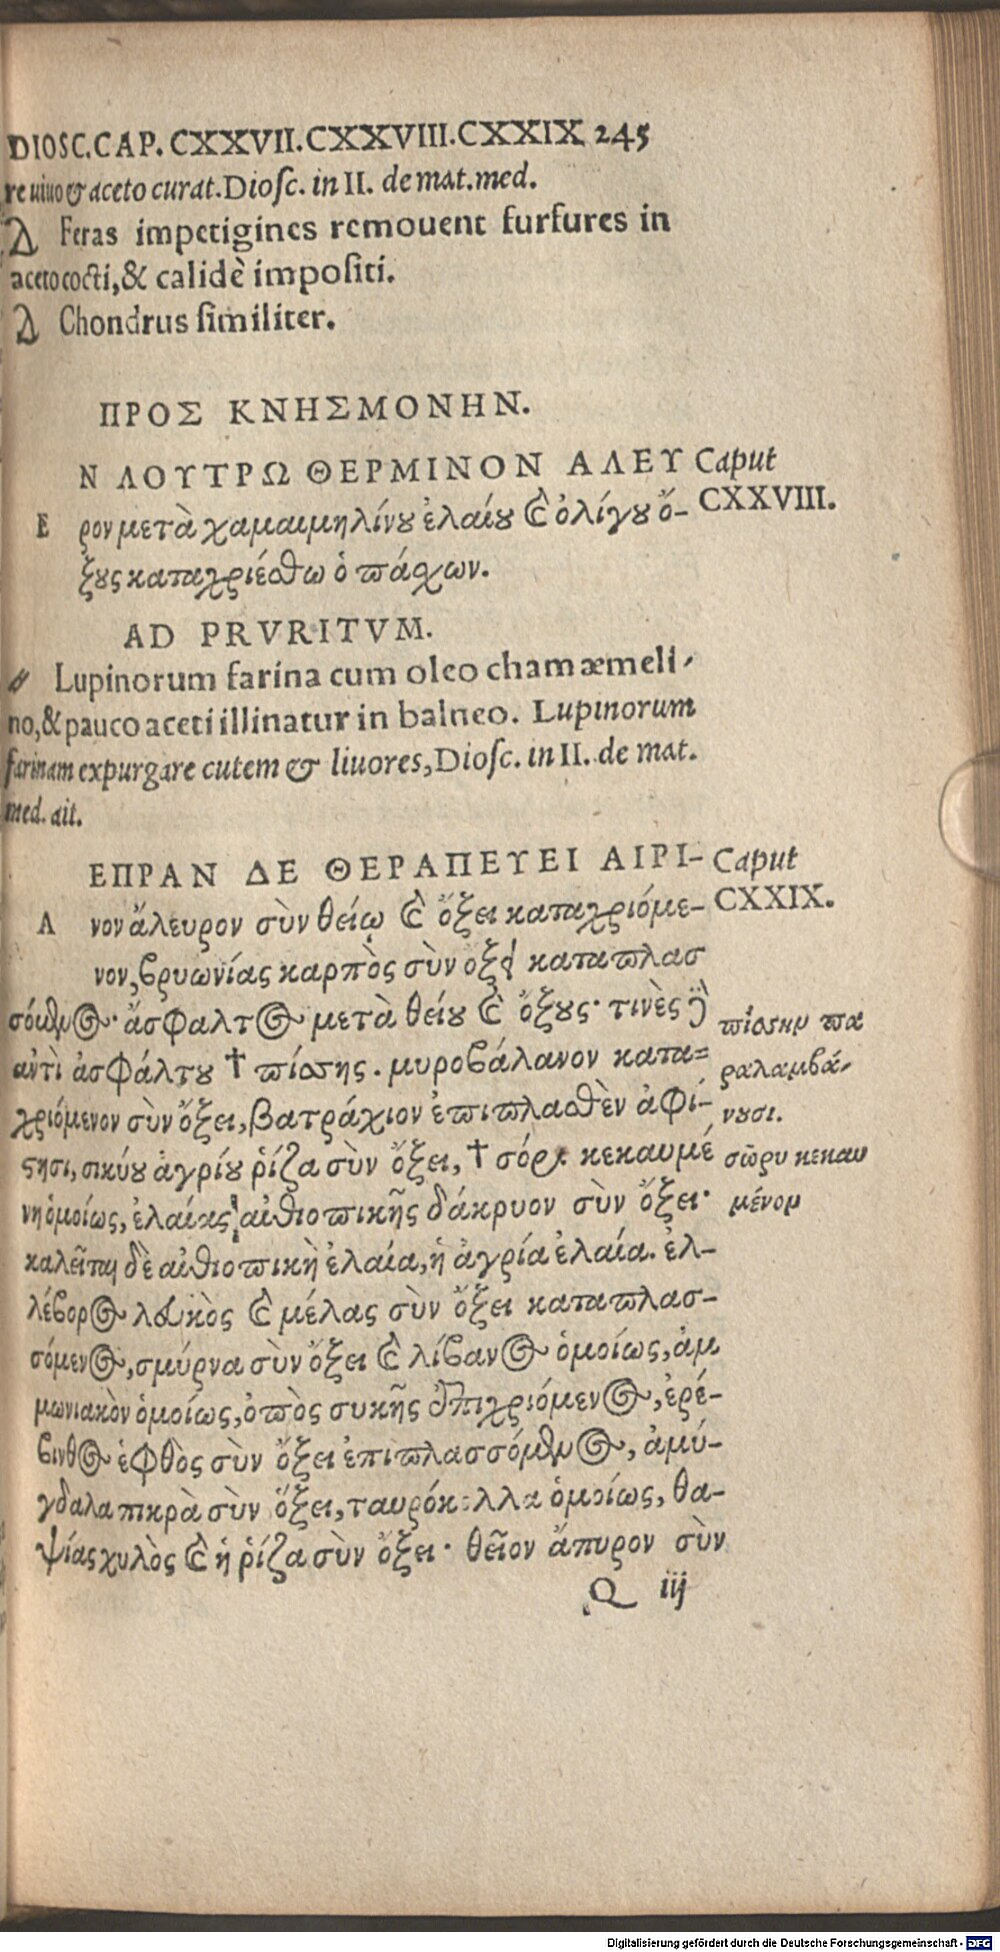 DIOSC. CAP. CXXVII. CXXVIII. CXXIX 245
re uiuo & aceto curat. Diosc. in II. de mat. med.
Feras impetigines remouent furfures in
aceto cocti, & calidè impositi.
Chondrus similiter.
ΠΡΟΣ ΚΝΗΣΜΟΝΗΝ.
Ν ΛΟΥΤΡΩ ΘΕΡΜΙΝΟΝ ΑΛΕΥ Caput
Ε ρον μετὰ χαμαιμηλίνου ἐλαίου καὶ ὀλίγου ὄ- CXXVIII.
ξυς καταχριέσθω ὁ πάσχων.
AD PRVRITVM.
Lupinorum farina cum oleo chamæmeli-
no, & pauco aceti illinatur in balneo. Lupinorum
farinam expurgare cutem & liuores, Diosc. in II. de mat.
med. ait.
ΕΠΡΑΝ ΔΕ ΘΕΡΑΠΕΥΕΙ ΑΙΡΙ- Caput
Λ νον ἄλευρον σὺν θείῳ καὶ ὄξει καταχριόμε- CXXIX.
νον, βρυωνίας καρπὸς σὺν ὄξει καταπλασ
σόμενος· ἄσφαλτος μετὰ θείου καὶ ὄξους· τινὲς δὲ πίσσην πα
ἀντὶ ἀσφάλτου † πίσσης. μυροβάλανον κατα= ραλαμβά-
χριόμενον σὺν ὄξει, βατράχιον ἐπιπλασθὲν ἀφί- νουσι.
στησι, σικύου ἀγρίου ῥίζα σὺν ὄξει, † σόρι κεκαυμέ σῶρυ κεκαυ
νη ὁμοίως, ἐλαίας αἰθιοπικῆς δάκρυον σὺν ὄξει· μένον
καλεῖται δὲ αἰθιοπικὴ ἐλαία, ἡ ἀγρία ἐλαία. ἐλ-
λέβορος λευκὸς καὶ μέλας σὺν ὄξει καταπλασ-
σόμενος, σμύρνα σὺν ὄξει καὶ λίβανος ὁμοίως, ἀμ
μωνιακὸν ὁμοίως, ὀπὸς συκῆς ἐπιχριόμενος, ἐρέ-
βινθος ἑφθὸς σὺν ὄξει ἐπιπλασσόμενος, ἀμύ-
γδαλα πικρὰ σὺν ὄξει, ταυρόκολλα ὁμοίως, θα-
ψίας χυλὸς καὶ ἡ ῥίζα σὺν ὄξει· θεῖον ἄπυρον σὺν
Q iij
Digitalisierung gefördert durch die Deutsche Forschungsgemeinschaft - DFG